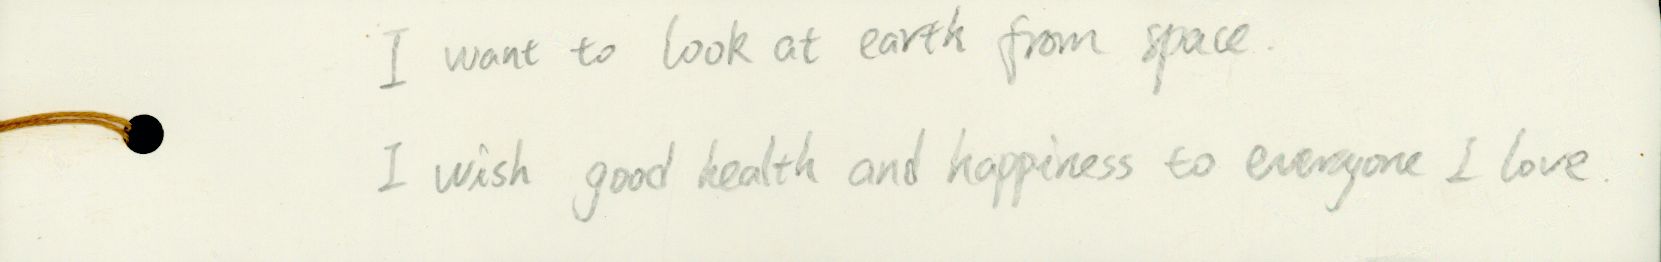 I want to look at earth from space.
I wish good health and happiness to everyone I love.